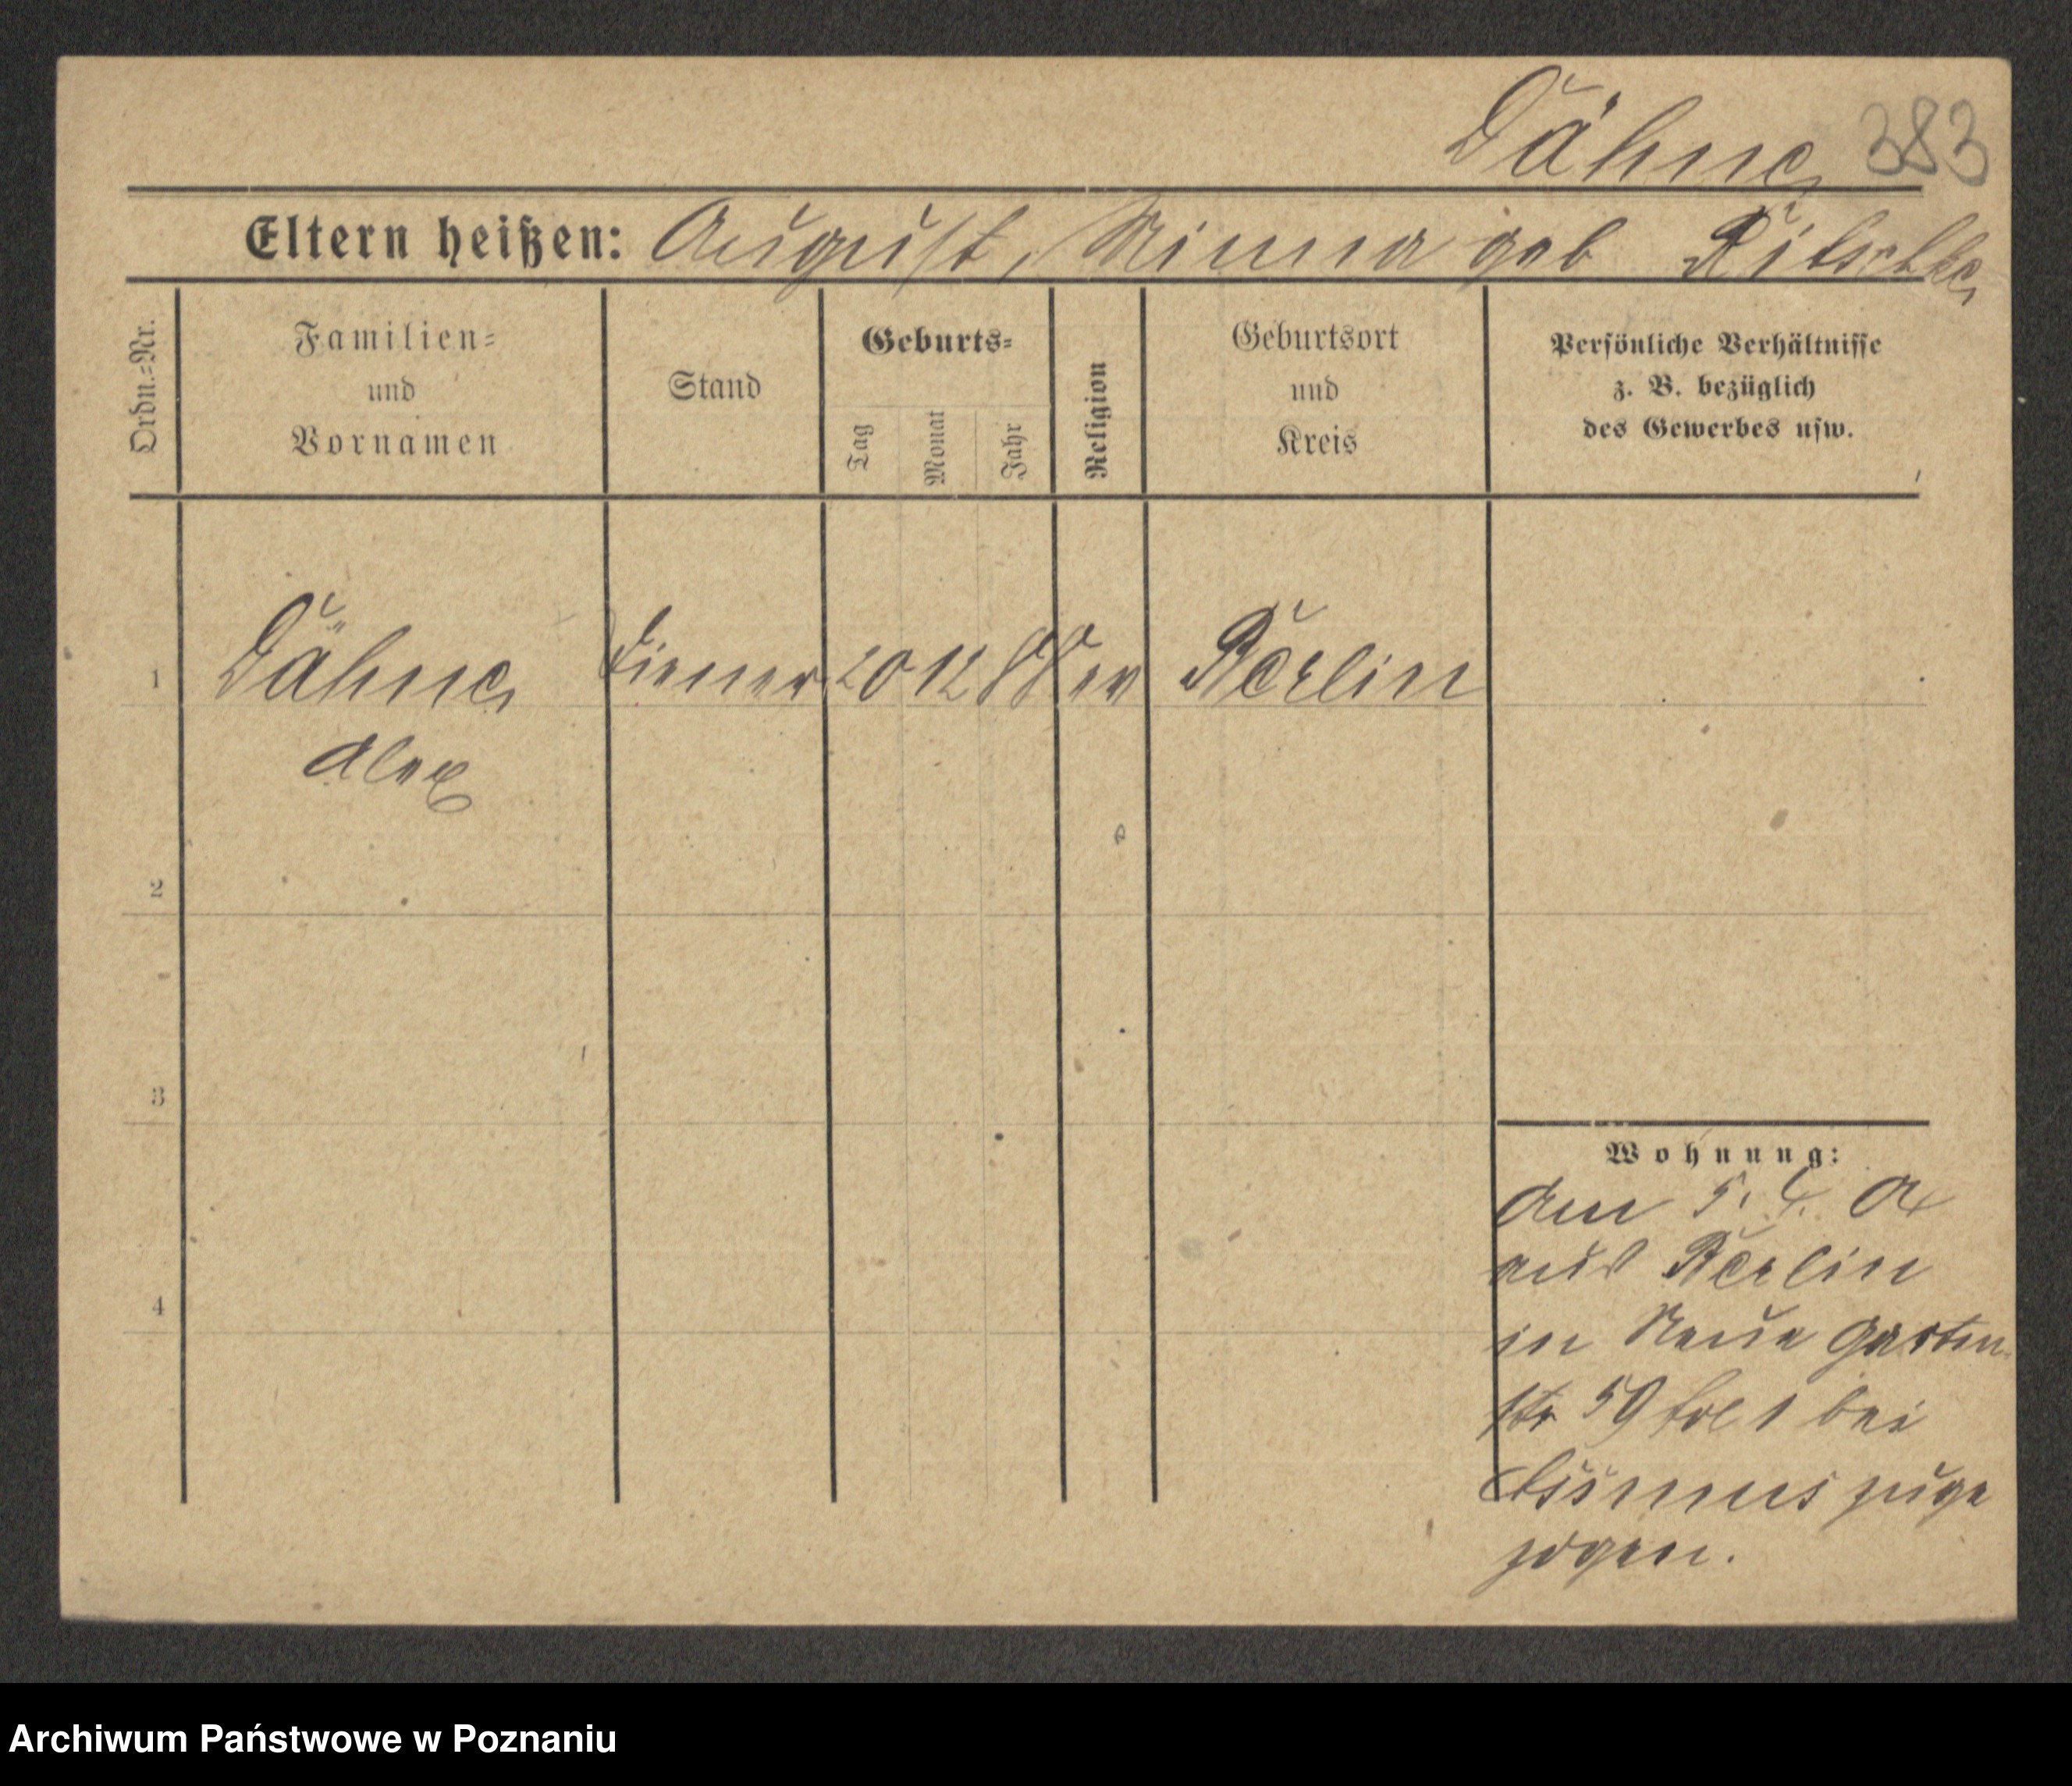 Dähne 383
Eltern heißen: August, Minna geb Ritschke
Ordn.=Nr.
Familien=
und
Vornamen
Stand
Geburts=
Tag
Monat
Jahr
Religion
Geburtsort
und
Kreis
Persönliche Verhältnisse
z. B. bezüglich
des Gewerbes usw.
1 Dähne Diener 20 12 88 ev Berlin
Alex
2
3
4
Wohnung:
Am 5. 4.
aus Berlin
in Neue Garten
str 59 bei
zuge
zogen.
Archiwum Państwowe w Poznaniu